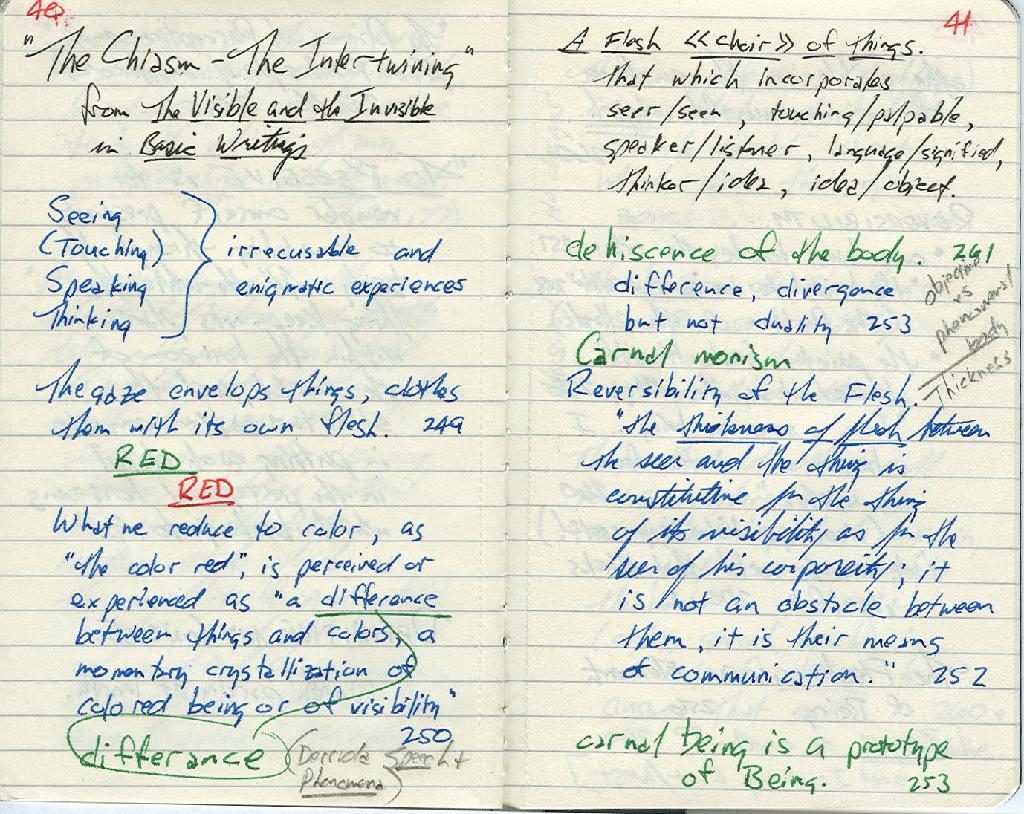 40
"The Chiasm - The Intertwining"
from The Visible and the Invisible
in Basic Writings
Seeing
(Touching)
Speaking
Thinking
irrecusable and
enigmatic experiences
The gaze envelops things, clothes
them with its own flesh. 249
RED
RED
What we reduce to color, as
"the color red", is perceived or
experienced as "a difference
between things and colors, a
momentary crystallization of
colored being or of visibility"
250
differance
(Derrida Speech +
Phenomena)
41
A Flesh <<chair>> of things.
That which incorporates
seer/seen, touching/palpable,
speaker/listener, language/signified,
thinker/idea, idea/object.
dehiscence of the body. 291
difference, divergence
but not duality 253
objective
vs
phenomenal
body
Thickness
Carnal monism
Reversibility of the Flesh.
"the thickness of flesh between
the seer and the thing is
constitutive for the thing
of its visibility as for the
seer of his corporeity; it
is not an obstacle between
them, it is their means
of communication." 252
carnal being is a prototype
of Being. 253